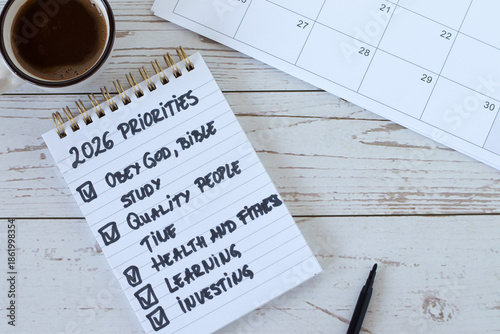 2026 PRIORITIES
OBEY GOD, BIBLE
STUDY
QUALITY PEOPLE
TIME
HEALTH AND FITNESS
LEARNING,
INVESTING,
20
21
27
28
29
30
Adobe Stock | #1861998354